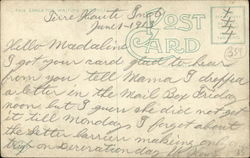 Terre Haute Ind
June 1-1913
POST CARD
Hello Madaline
I got your card glad to hear
from you tell Mama I droped
a letter in the Mail Box Friday
noon but I guess she did not get
it till Monday I forgot about
the letter carrier makeing one
trip on Decreration day